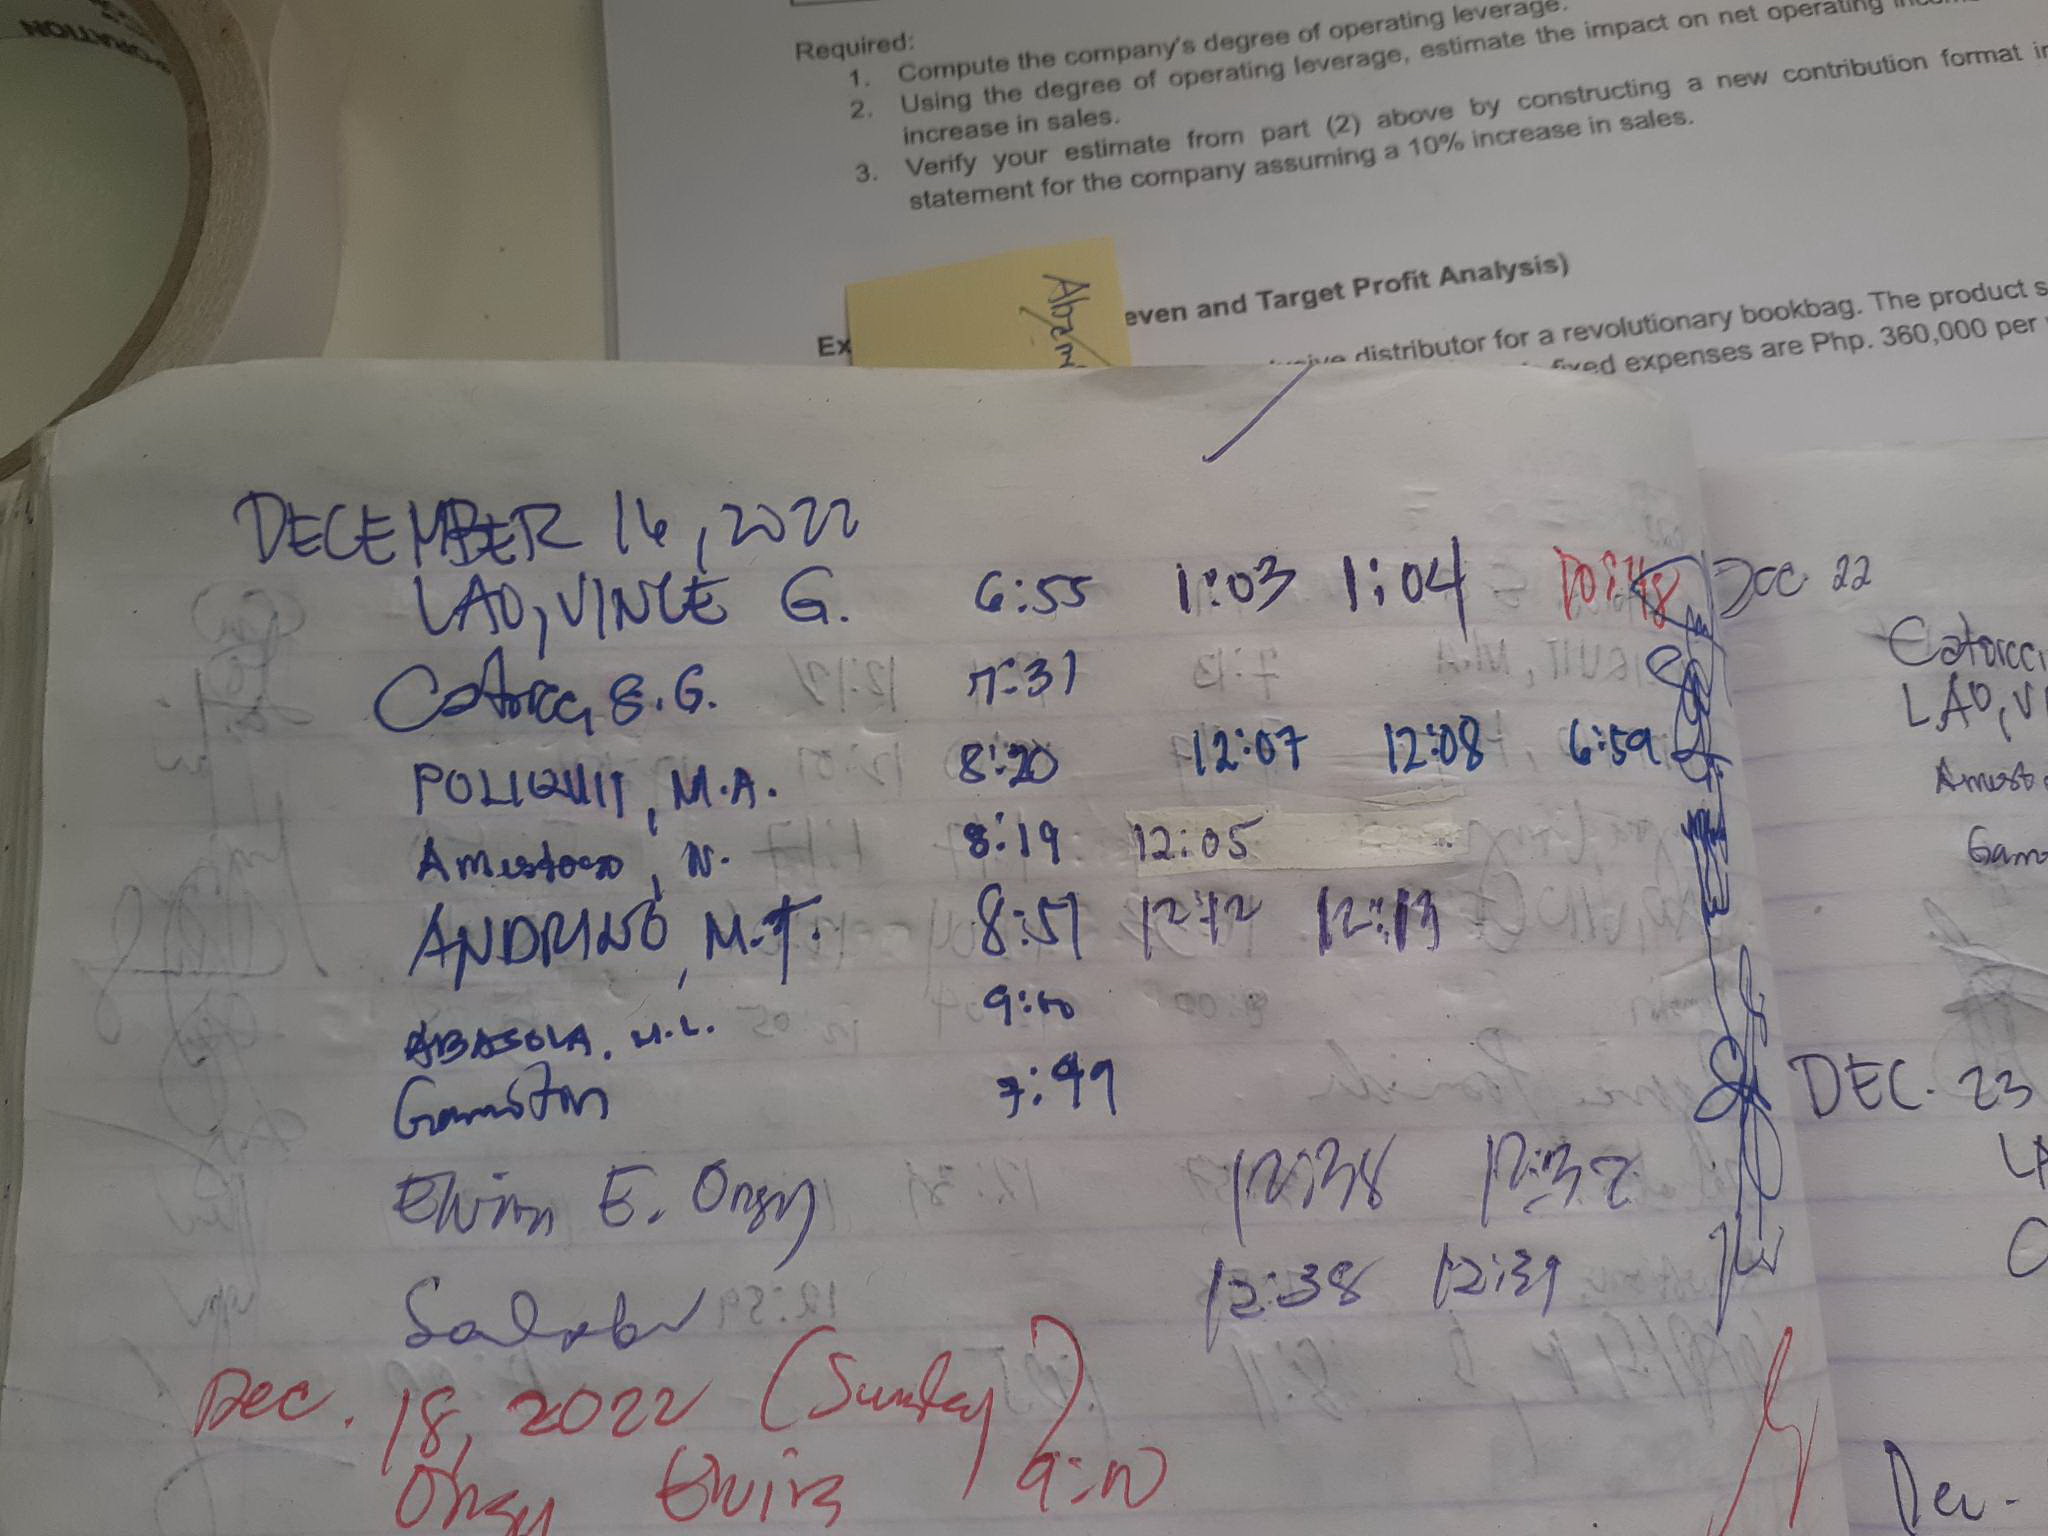 ORATION
Required:
1. Compute the company's degree of operating leverage.
2. Using the degree of operating leverage, estimate the impact on net operating
increase in sales.
3. Verify your estimate from part (2) above by constructing a new contribution format
statement for the company assuming a 10% increase in sales.
Ex even and Target Profit Analysis)
distributor for a revolutionary bookbag. The product s
fixed expenses are Php. 360,000 per
DECEMBER 16, 2022
LAO, VINCE G. 6:55 1:03 1:04
Catorce, G. 7:31
POLIQUIT, M.A. 8:20 12:07 12:08 6:59
Amestoso, N. 8:19 12:05
ANDRINO, M.T. 8:51 12:12 12:13
ABASOLA, M.L. 9:00
Gamotan 7:49
Elvira E. Ongy 12:38 12:32
12:38 12:39
Dec. 18, 2022 (Sunday)
Ongy Elvira 9:10
Dec 22
LAO, VI
Amesto
Gamo
DEC. 23
LA
Dec.